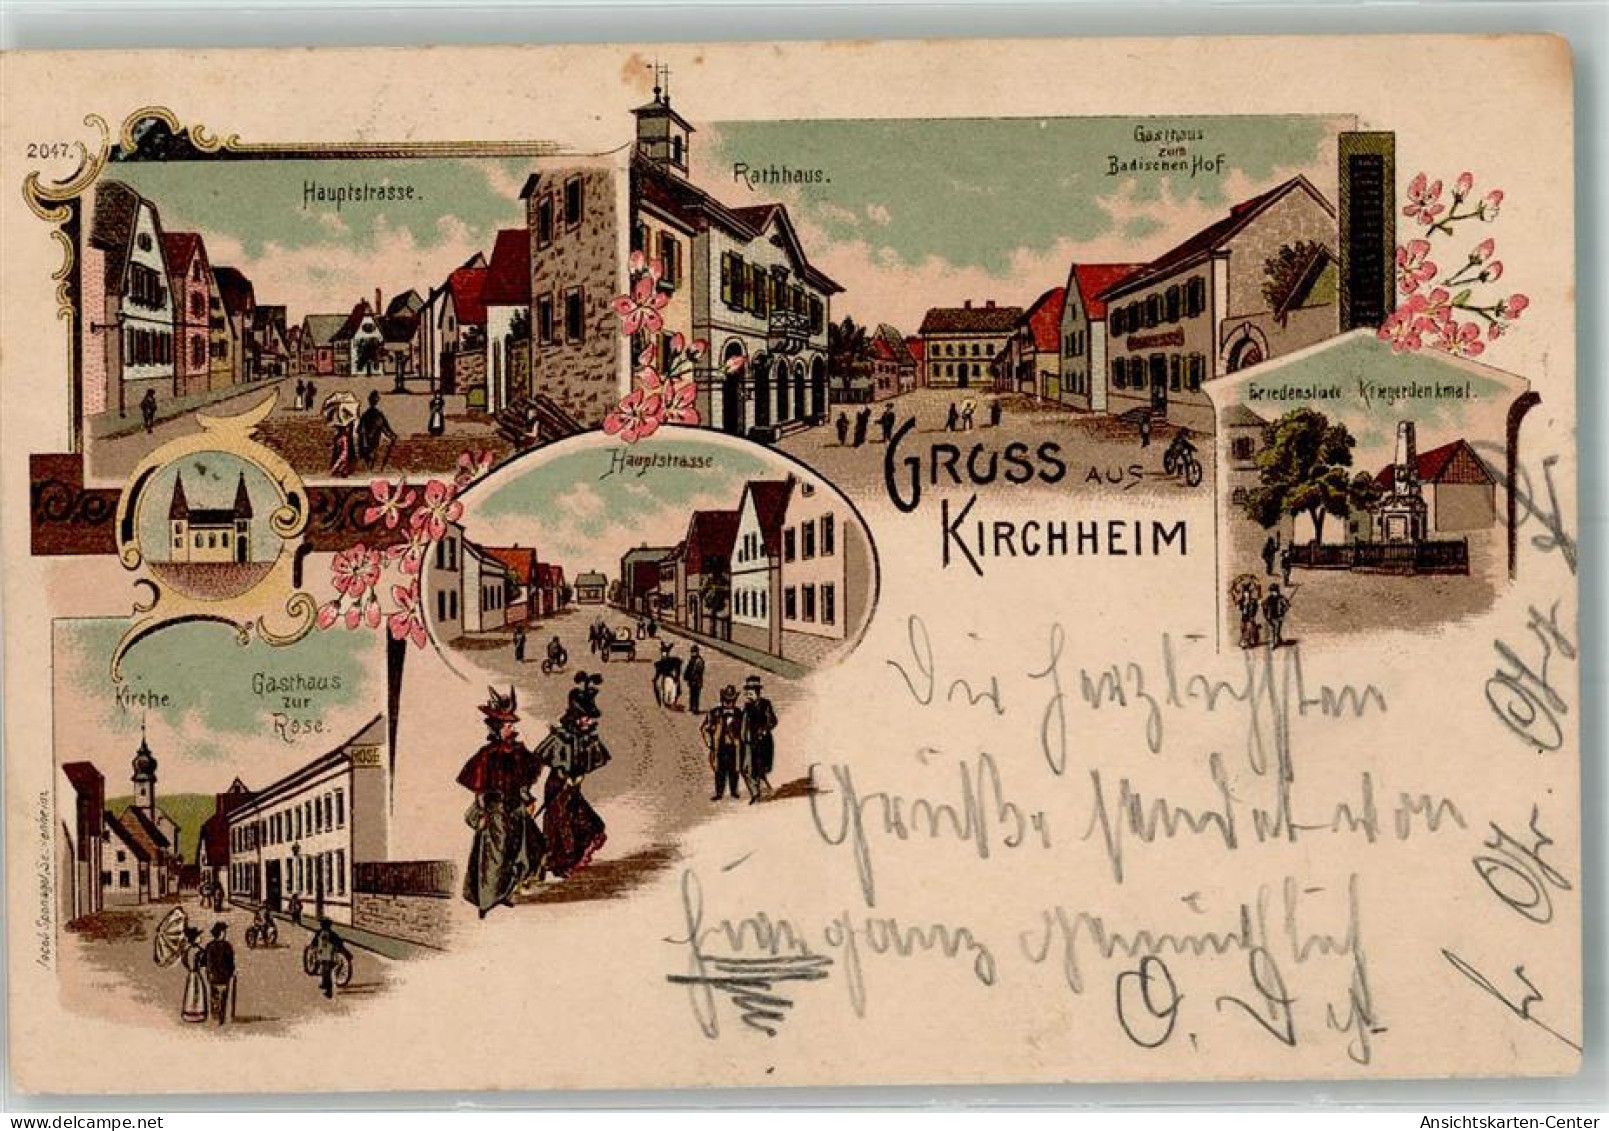 2047.
Hauptstrasse.
Rathhaus.
Gasthaus
zum
Badischen Hof
Kriegerdenkmal.
Hauptstrasse
GRUSS AUS
KIRCHHEIM
Kirche.
Gasthaus
zur
Rose.
ROSE
Jacob Sponagel,
Die herzlichsten
Grüße sendet von
hier ganz gemündlich
Ansichtskarten-Center